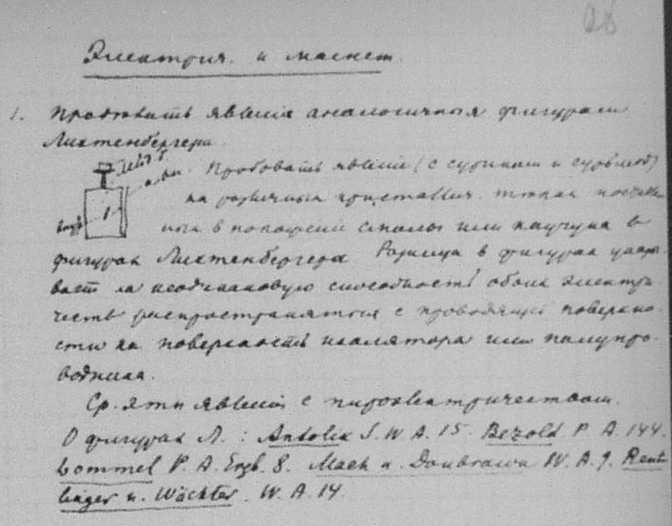 28
Электрич. и магнет.
1. Продолжить явления аналогичныя фигурам
Лихтенберга.
Пробовать явлен. (с суриком и
на различных кристаллич. телах
в положении смолы или каучука в
фигурах Лихтенберга. Разница в фигурах указы-
вает на неодинаковую способность обоих электри-
честв распространяться с проводящей поверхно-
сти на поверхность изолятора или полупро-
водника.
Ср. эти явления с пироэлектричеством.
О фигурах Л.: Antolik S. W. A. 15. Bezold P. A. 144.
Lommel P. A. Ergb. 8. Mach u. Doubrawa W. A. 9. Reit-
linger u. Wächter. W. A. 14.